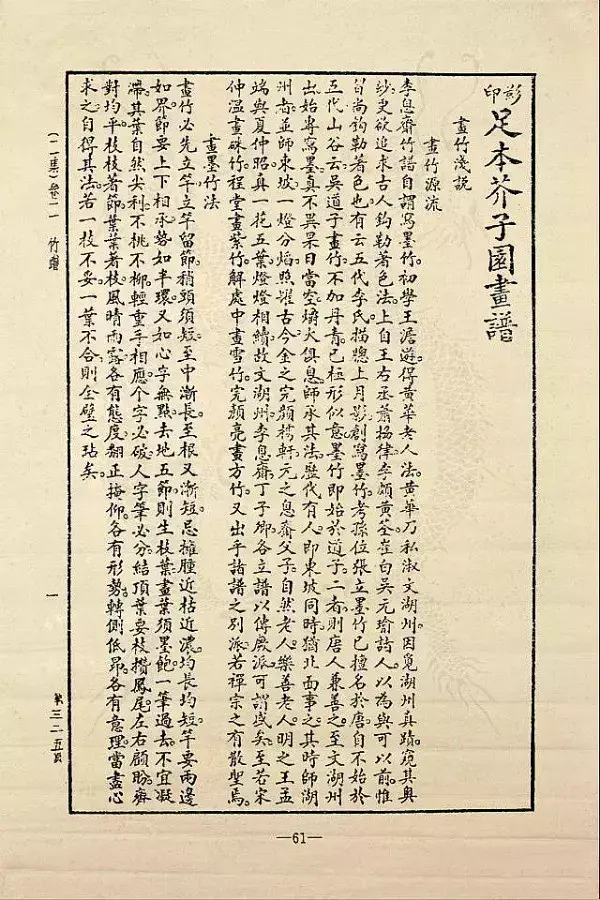 影印 足本芥子園畫譜
畫竹淺說
畫竹源流
李息齋竹譜自謂寫墨竹。初學王澹遊。得黃華老人法。黃華乃私淑文湖州。因覓湖州真蹟。窺其奧
妙。更欲追求古人鈎勒著色法。上自王右丞蕭協律李頗黃筌崔白吳元瑜諸人。以為與可以前。惟
皆尚鈎勒著色也。有云五代李氏描牕上月影。創寫墨竹。考孫位張立墨竹已擅名於唐。自不始於
五代。山谷云。吳道子畫竹。不加丹青。已極形似。意墨竹即始於道子。二者則唐人兼善之。至文湖州
出。始專寫墨。真不異杲日當空。爝火俱息。師承其法。歷代有人。即東坡同時。猶北面事之。其時師湖
州者。並師東坡。一燈分焰。照耀古今。金之完顏樗軒。元之息齋父子。自然老人。樂善老人。明之王孟
端與夏仲昭。真一花五葉。燈燈相續。故文湖州。李息齋。丁子卿。各立譜以傳厥派。可謂盛矣。至若宋
仲溫畫硃竹。程堂畫紫竹。解處中畫雪竹。完顏亮畫方竹。又出乎諸譜之別派。若禪宗之有散聖焉。
畫墨竹法
畫竹必先立竿。立竿留節。稍頭須短。至中漸長。至根又漸短。忌擁腫近枯近濃。均長均短。竿要兩邊
如界。節要上下相承。勢如半環。又如心字無點。去地五節。則生枝葉。畫葉須墨飽。一筆過去。不宜凝
滯。其葉自然尖利。不桃不柳。輕重手相應。个字必破。人字筆必分。結頂葉要枝攢鳳尾。左右顧盼。齊
對均平。枝枝著節。葉葉著枝。風晴雨露。各有態度。翻正掩仰。各有形勢。轉側低昂。各有意理。當盡心
求之。自得其法。若一枝不妥。一葉不合。則全璧之玷矣。
(二集) 卷二 竹譜
一
第三二五頁
—61—